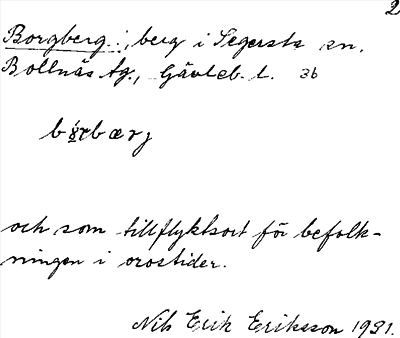 2
Borgberg :, berg i Segersta sn.
Bollnäs tg., Gävleb. l. 3b
och som tillflyktsort för befolk-
ningen i orostider.
Nils Erik Eriksson 1931.